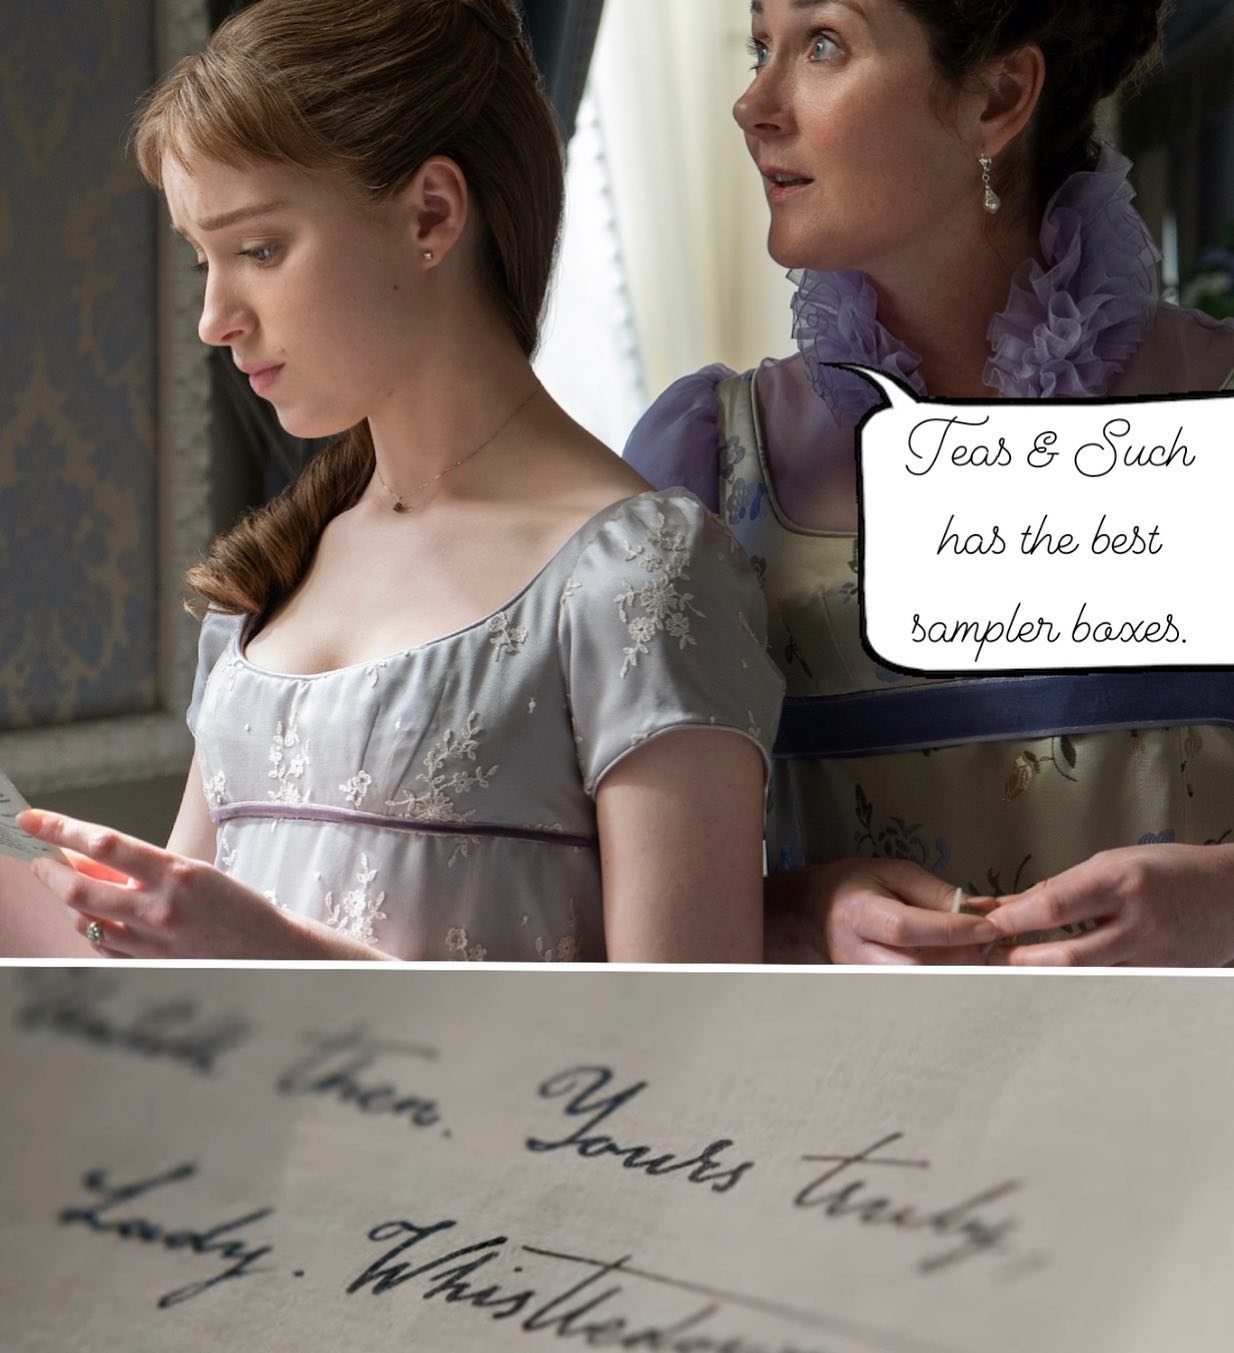 Teas & Such
has the best
sampler boxes.
then. Yours truly,
Lady. Whistledown